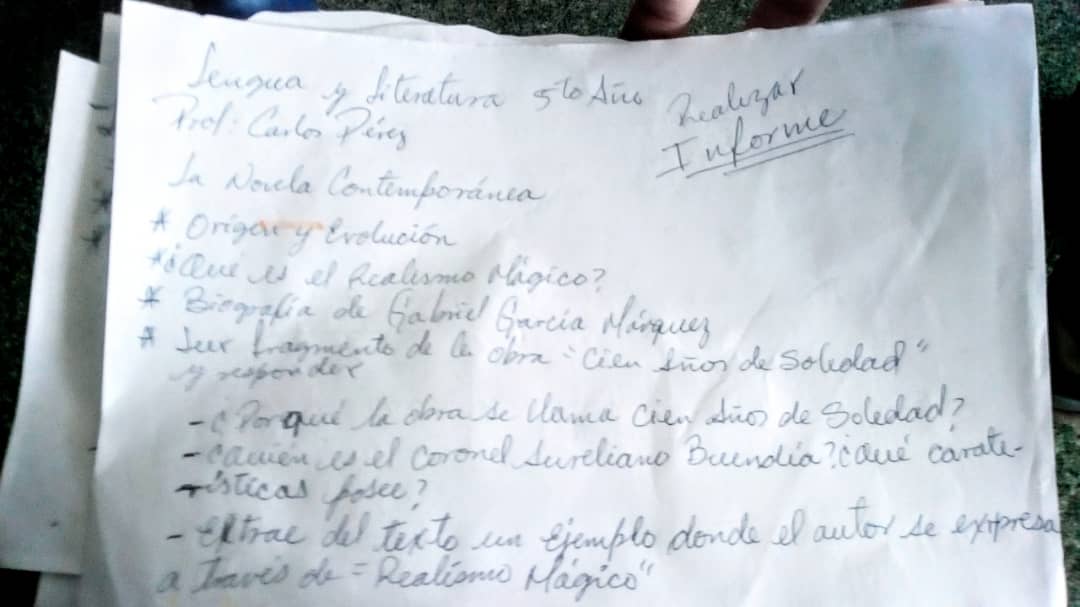 Lengua y Literatura 5to Año
Realizar
Prof: Carlos Pérez
Informe
La Novela Contemporánea
* Origen y Evolución
* ¿Qué es el Realismo Mágico?
* Biografía de Gabriel García Márquez
* Leer fragmento de la obra "Cien Años de Soledad"
y responder
- ¿Por qué la obra se llama Cien Años de Soledad?
- ¿Quién es el Coronel Aureliano Buendía? ¿Qué carate-
rísticas posee?
- Extrae del texto un Ejemplo donde el autor se expresa
a través de "Realismo Mágico"